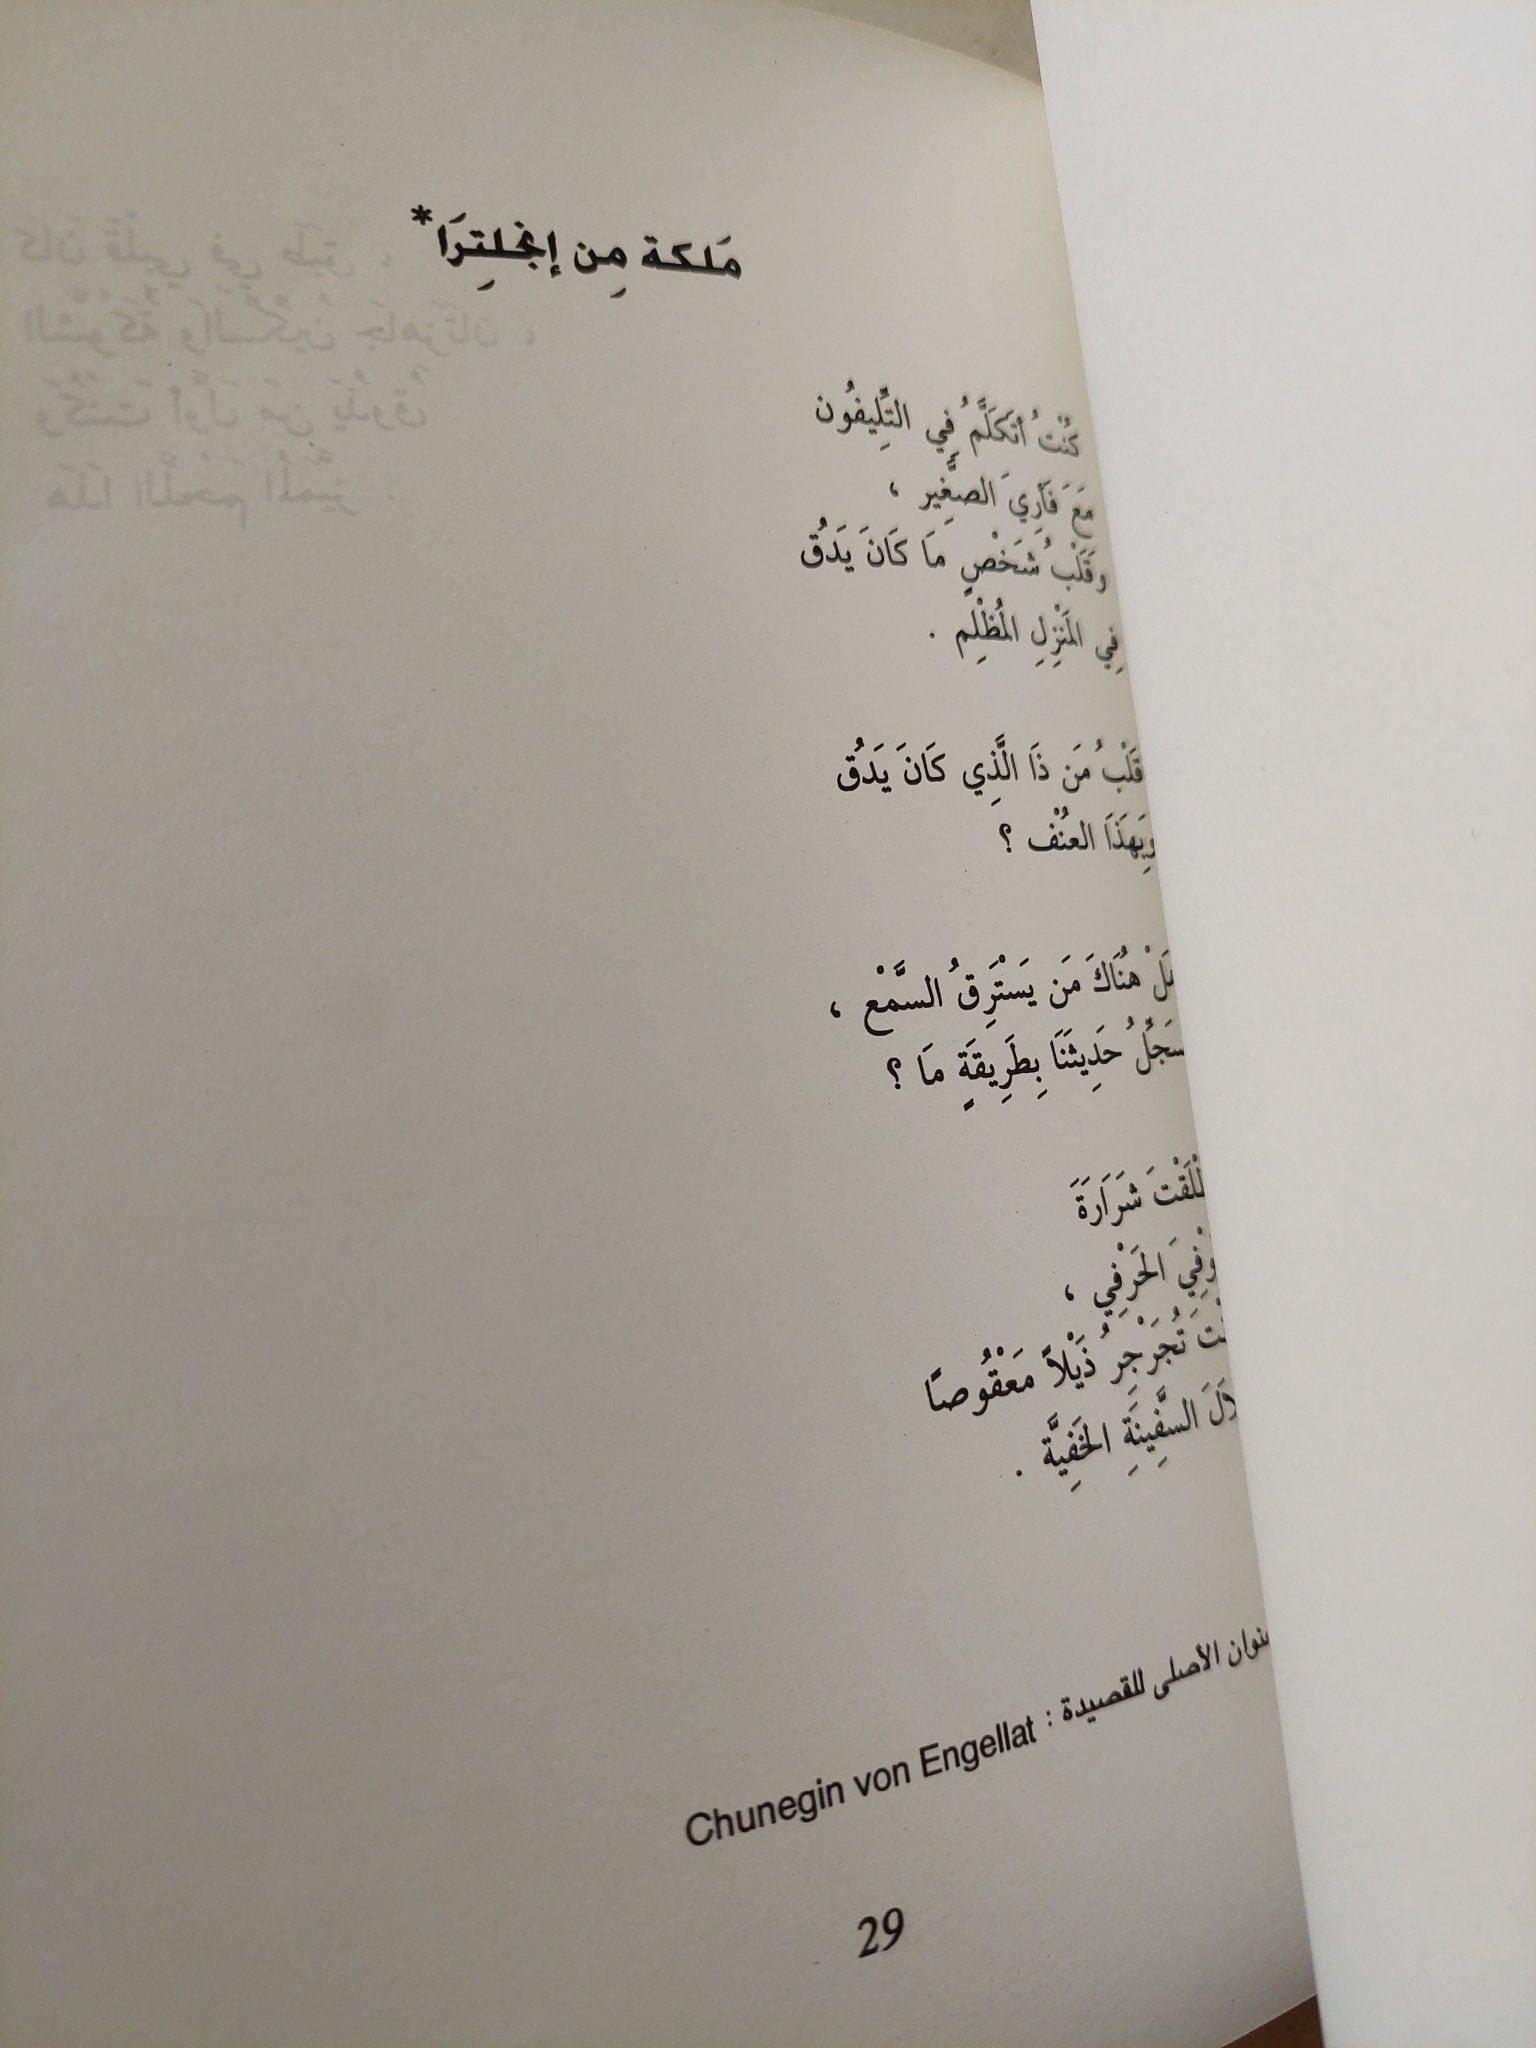 مَلكة مِن إنجلِترَا*
كُنْتُ أتَكَلَّمُ فِي التِّلِيفُون
مَعَ فَأرِيَ الصغَِّير ،
وقَلْبُ شَخْصٍ مَا كَانَ يَدُق
فِي المَنْزِلِ المُظْلِم .
قَلْبُ مَن ذَا الَّذِي كَانَ يَدُق
وبِهَذَا العُنْف ؟
هَلْ هُنَاكَ مَن يَسْتَرِقُ السَّمْعْ ،
حَدِيثَنَا بِطَرِيقَةٍ مَا ؟
شَرَارَةَ
الحَرْفِي ،
تُجَرْجِرُ ذَيْلاً مَعْقُوصًا
السَّفِينَةِ الخَفِيَّة .
الأصلى للقصيدة : Chunegin von Engellat
29